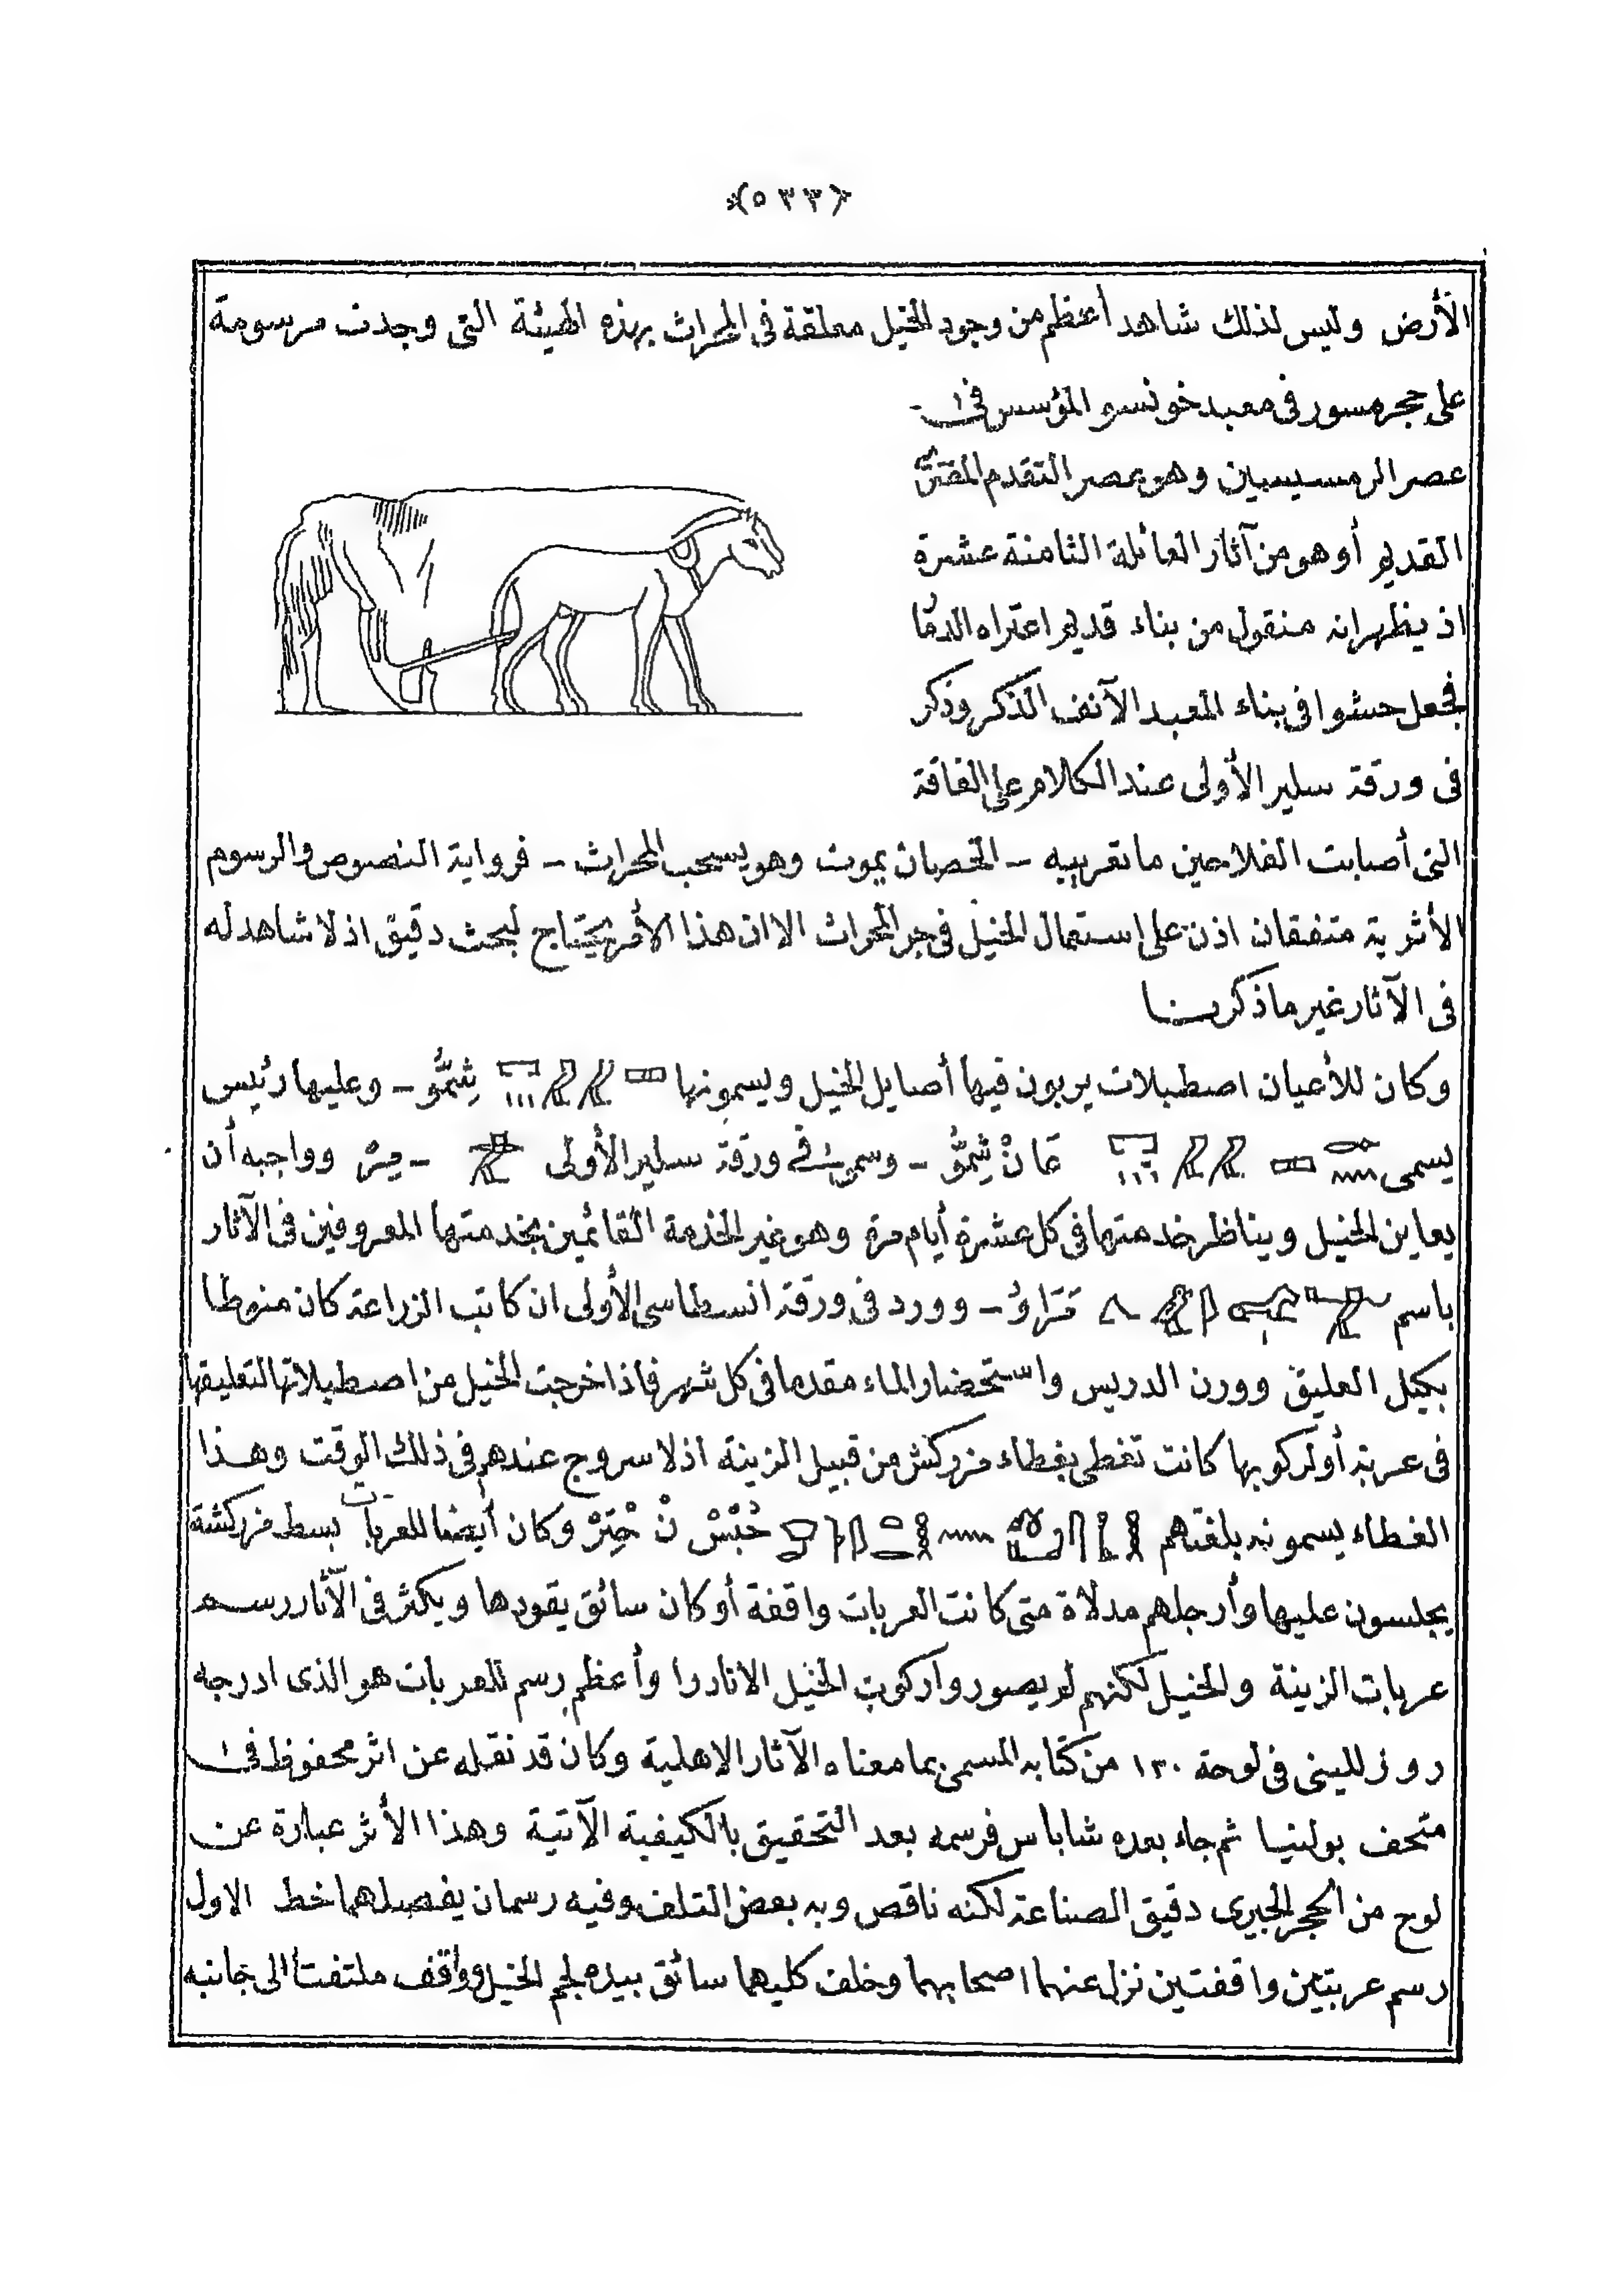 ﴿٥٣٣﴾
الأرض وليس لذلك شاهد أعظم من وجود الخيل معلقة فى المحراث بهذه الهيئة التى وجدت مرسومة
على حجر مسور فى معبد خونسو المؤسس فى
عصر الرمسيسيين وهو عصر التقدم
القديم أو هو من آثار العائلة الثامنة عشرة
اذ يظهر انه منقول من بناء قديم اعتراه الدمار
فجعل حشوا فى بناء المعبد الآنف الذكر وذكر
فى ورقة سلير الأولى عند الكلام على الفاقة
التى أصابت الفلاحين ما تعريبه - الحصان يموت وهو يسحب المحراث - فرواية النصوص والرسوم
الأثرية متفقان اذن على استعمال الخيل فى جر المحراث الا ان هذا الأمر يحتاج لبحث دقيق اذ لا شاهد له
فى الآثار غير ما ذكرنا
وكان للأعيان اصطبلات يربون فيها أصايل الخيل ويسمونها شِمُّو - وعليها رئيس
يسمى عَانْ شِمُّو - وسمى فى ورقة سلير الأولى - مِرْ وواجبه أن
يعاين الخيل ويناظر خدمتها فى كل عشرة أيام مرة وهو غير الخدمة القائمين بخدمتها المعروفين فى الآثار
باسم مَرَاوُ - وورد فى ورقة انسطاسى الأولى ان كاتب الزراعة كان منوطا
بكيل العليق ووزن الدريس واستحضار الماء مقدما فى كل شهر فاذا خرجت الخيل من اصطبلاتها لتعليقها
فى عربة أو لركوبها كانت تغطى بغطاء مزركش من قبيل الزينة اذ لا سروج عندهم فى ذلك الوقت وهذا
الغطاء يسمونه بلغتهم حُبْسْ نْ حِتِرْ وكان أيضا للعربات بسط مزركشة
يجلسون عليها وأرجلهم مدلاة متى كانت العربات واقفة أو كان سائق يقودها ويكثر فى الآثار رسم
عربات الزينة والخيل لكنهم لم يصوروا ركوب الخيل الا نادرا وأعظم رسم للعربات هو الذى ادرجه
روزللينى فى لوحة ١٢٠ من كتابه المسمى بما معناه الآثار الاهلية وكان قد نقله عن اثر محفوظ فى
متحف بولنيا ثم جاء بعده شاباس فرسمه بعد التحقيق بالكيفية الآتية وهذا الأثر عبارة عن
لوح من الحجر الجيرى دقيق الصناعة لكنه ناقص وبه بعض التلف وفيه رسمان يفصلهما خط الاول
رسم عربتين واقفتين نزل عنهما اصحابهما وخلف كليهما سائق بيده لجم الخيل وواقف ملتفتا الى جانبه